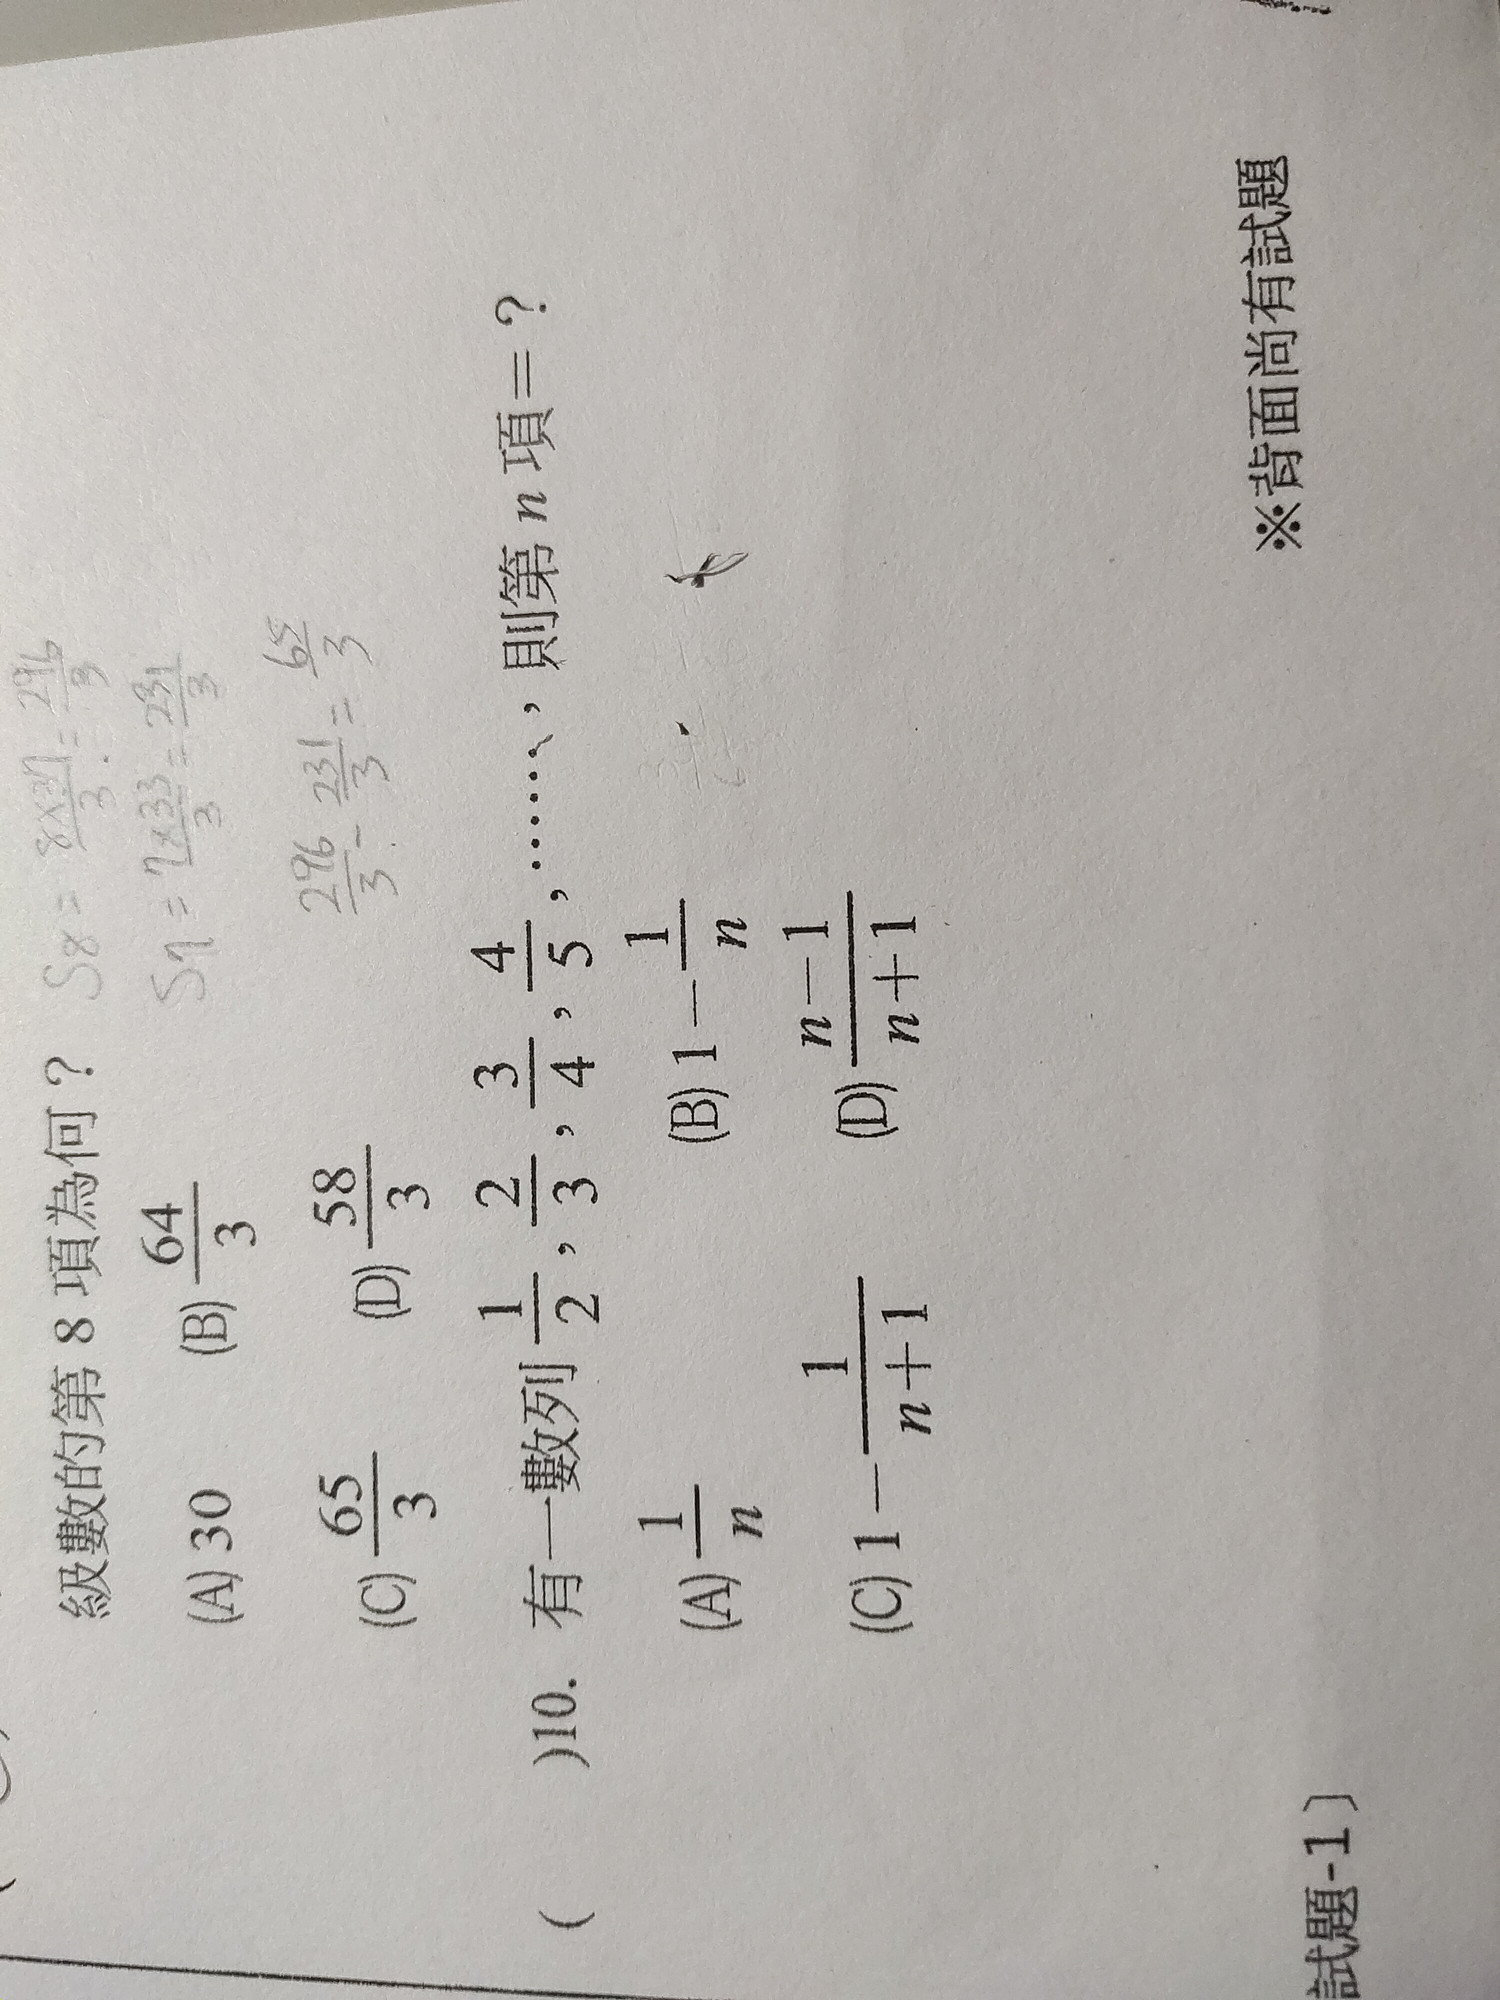 級數的第 8 項為何？ S8 = 8×37/3 = 296/3
(A) 30 (B) 64/3 S7 = 7×33/3 = 231/3
(C) 65/3 (D) 58/3 296/3 - 231/3 = 65/3
( )10. 有一數列 1/2, 2/3, 3/4, 4/5, ……, 則第 n 項＝？
(A) 1/n (B) 1－1/n
(C) 1－1/(n＋1) (D) (n－1)/(n＋1)
※背面尚有試題
試題-1〕